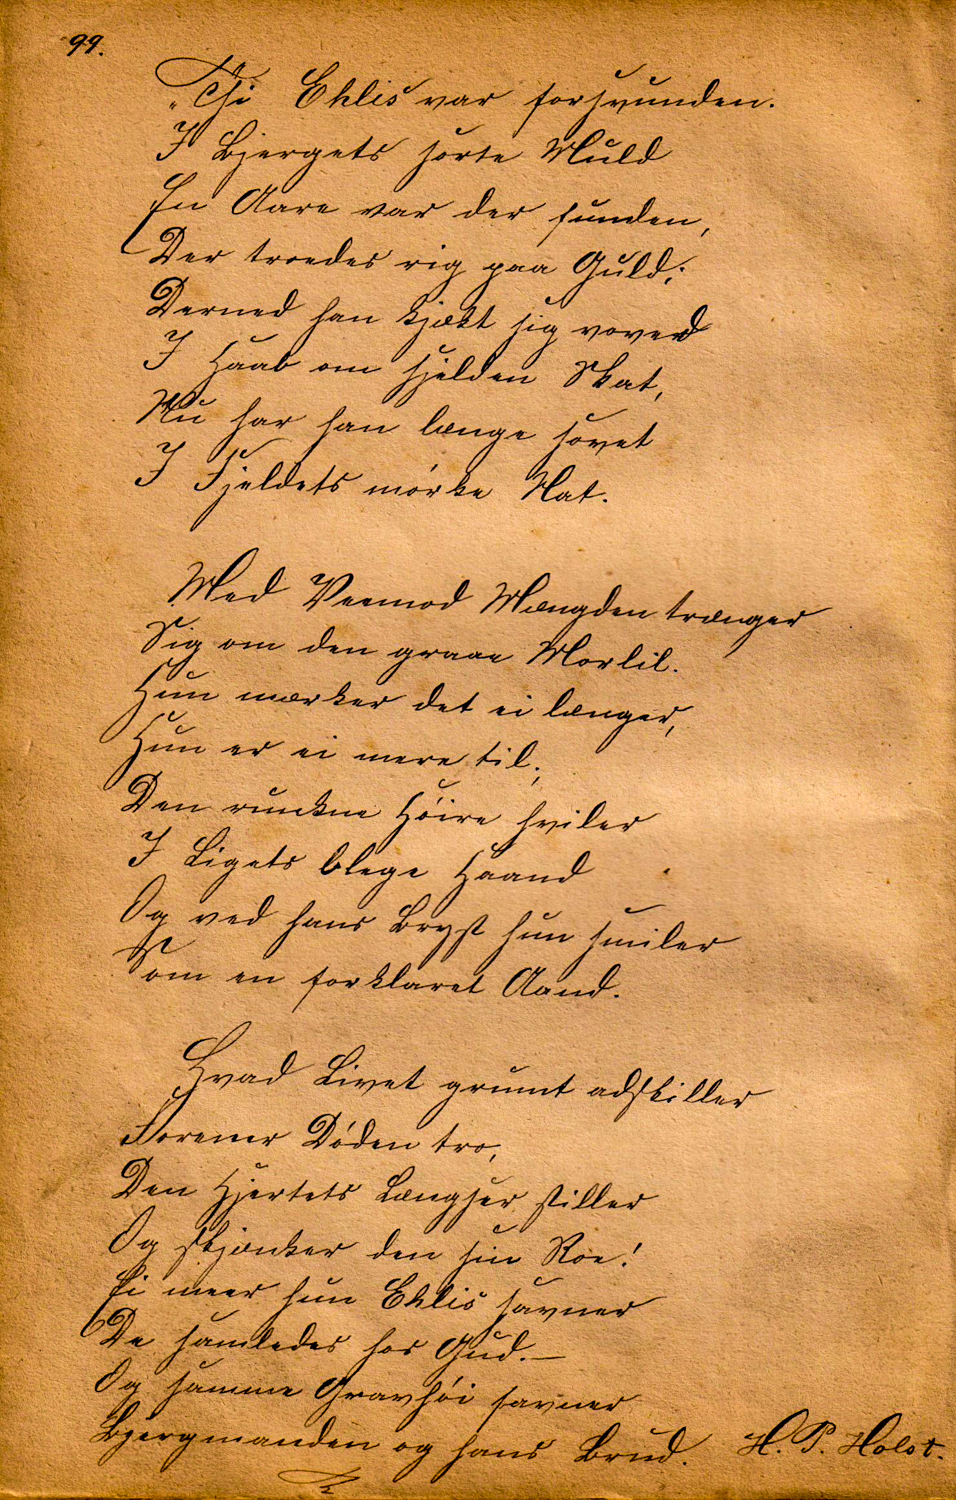 99.
"Thi Ehlis var forsvunden.
I Bjergets sorte Muld
En Aare var der funden,
Der troedes rig paa Guld;
Derned han kjækt sig voved
I Haab om sjelden Skat,
Nu har han længe sovet
I Fjeldets mörke Nat.
Med Veemod Mængden trænger
Sig om den graae Morlil.
Hun mærker det ei længer,
Hun er ei mere til;
Den runkne Höire hviler
I Ligets blege Haand
Og ved hans Bryst hun smiler
Som en forklaret Aand.
Hvad Livet grumt adskiller
Forener Döden tro,
Den Hjertets Længsler stiller
Og skjænker den sin Roe!
Ei meer hun Ehlis savner
De samledes hos Gud.—
Og samme Gravhöi favner
Bjergmanden og hans Brud. H. P. Holst.